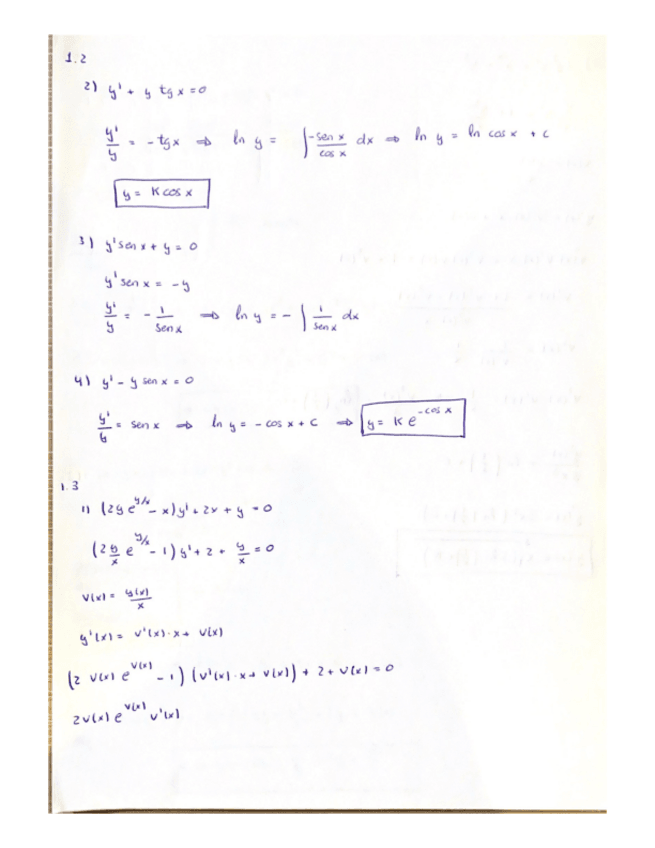 1.2
2) y' + y tg x = 0
y'/y = - tg x ⇒ ln y = ∫ -sen x/cos x dx ⇒ ln y = ln cos x + c
y = K cos x
3) y' sen x + y = 0
y' sen x = - y
y'/y = - 1/sen x ⇒ ln y = - ∫ 1/sen x dx
4) y' - y sen x = 0
y'/y = sen x ⇒ ln y = - cos x + C ⇒ y = K e^{-cos x}
1.3
1) (2y e^{y/x} - x) y' + 2x + y = 0
(2 y/x e^{y/x} - 1) y' + 2 + y/x = 0
v(x) = y(x)/x
y'(x) = v'(x) · x + v(x)
(2 v(x) e^{v(x)} - 1) (v'(x) · x + v(x)) + 2 + v(x) = 0
2v(x) e^{v(x)} v'(x)